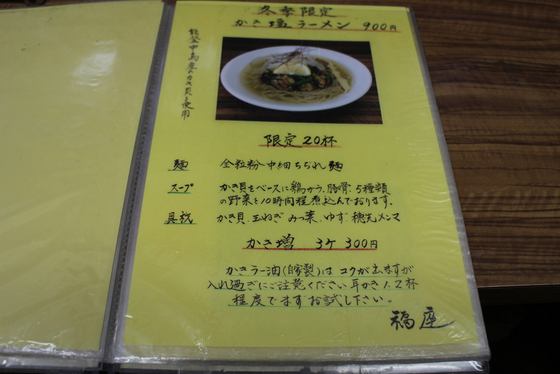 冬季限定
かき塩ラーメン 900円
能登中島産のかき貝を使用
限定20杯
麺 全粒粉中細ちぢれ麺
スープ かき貝をベースに鶏がら、豚骨、5種類
の野菜を10時間程煮込んでおります。
具材 かき貝、玉ねぎ みつ葉、ゆず 穂先メンマ
かき増 3ケ 300円
かきラー油(自家製)は コクが出ますが
入れ過ぎにご注意ください 耳かき1、2杯
程度でまずお試し下さい。
福座